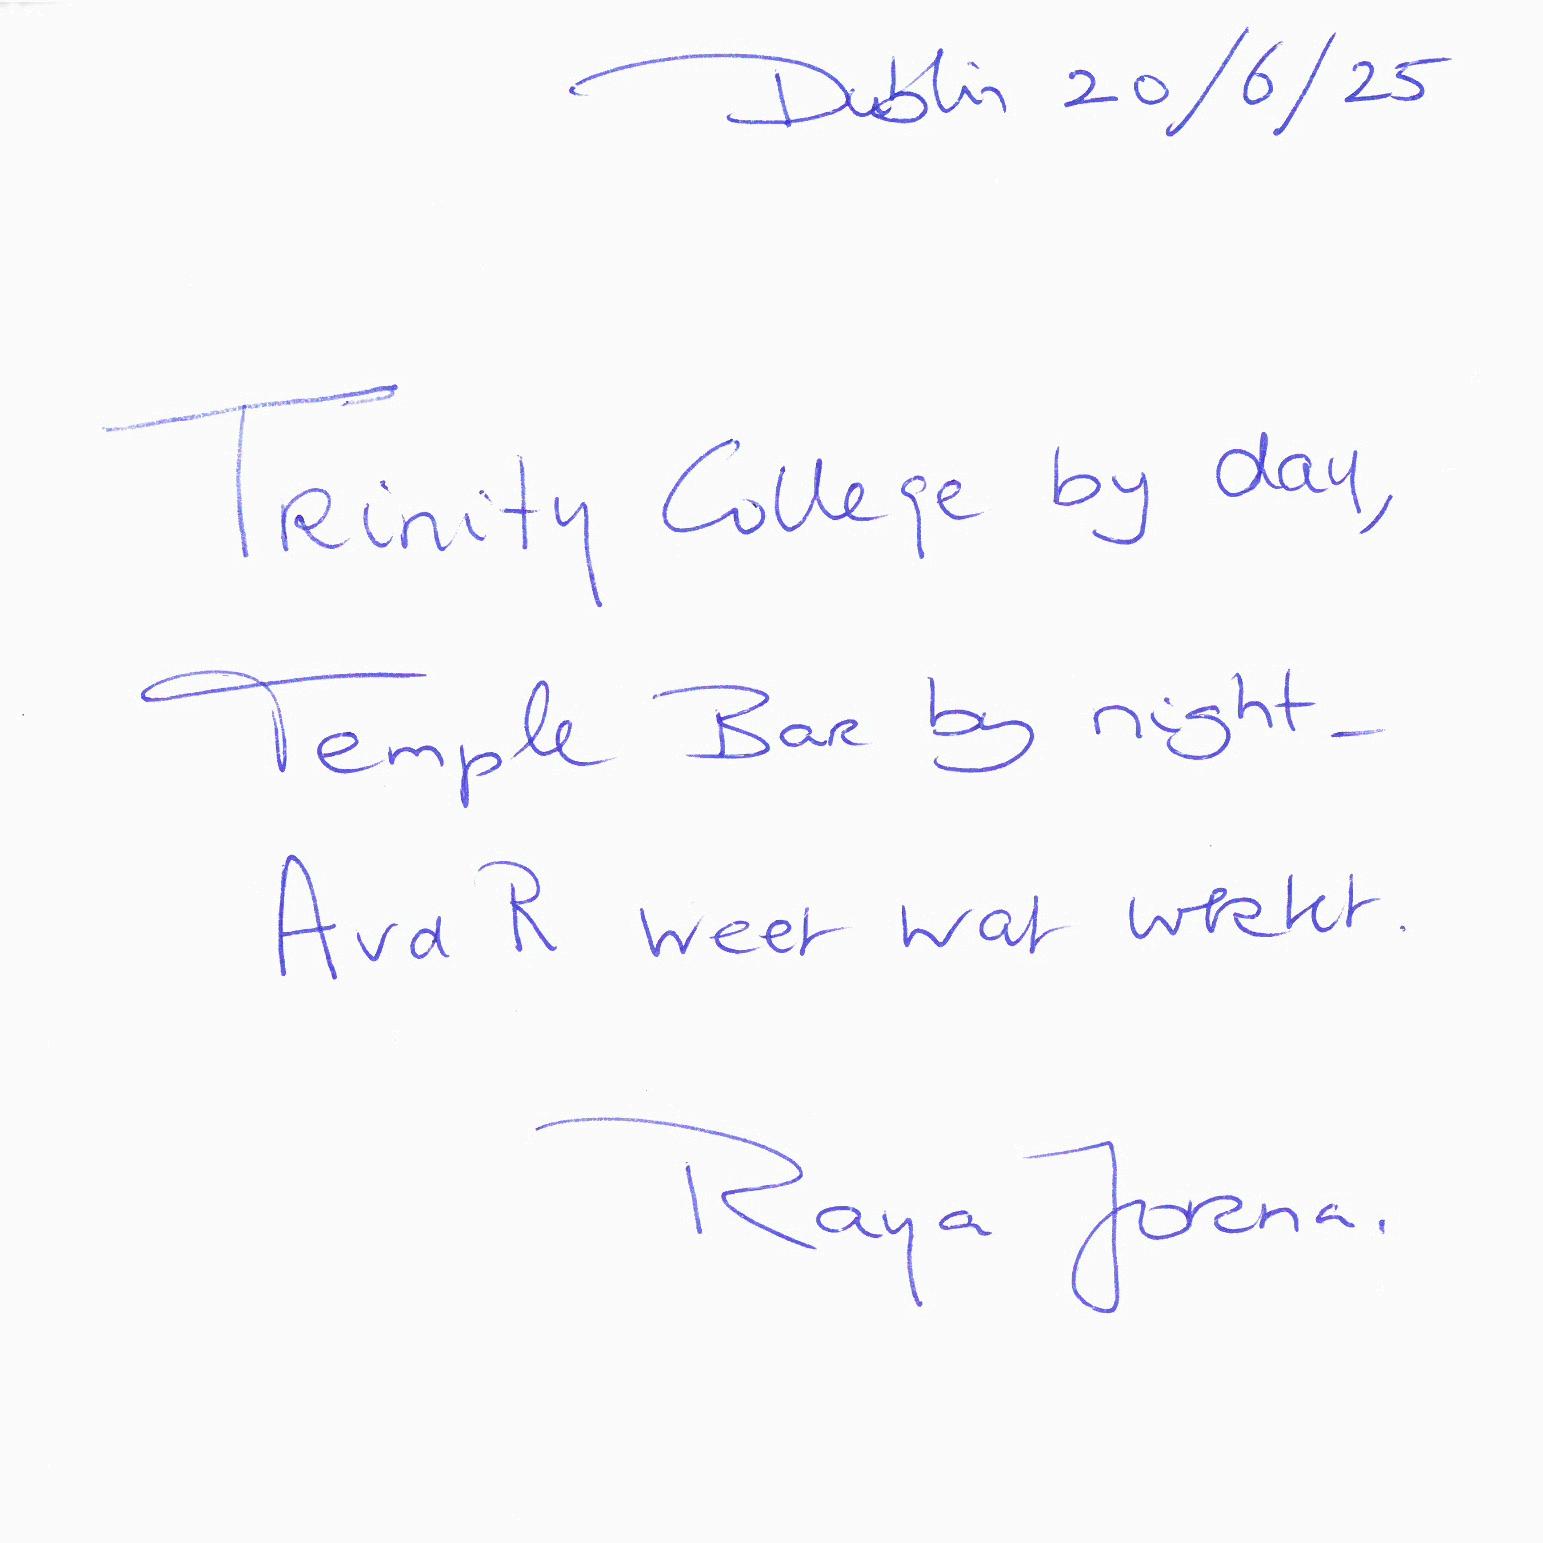 Dublin 20/6/25
Trinity College by day,
Temple Bar by night -
AvdR weet wat werkt.
Raya Jorna.